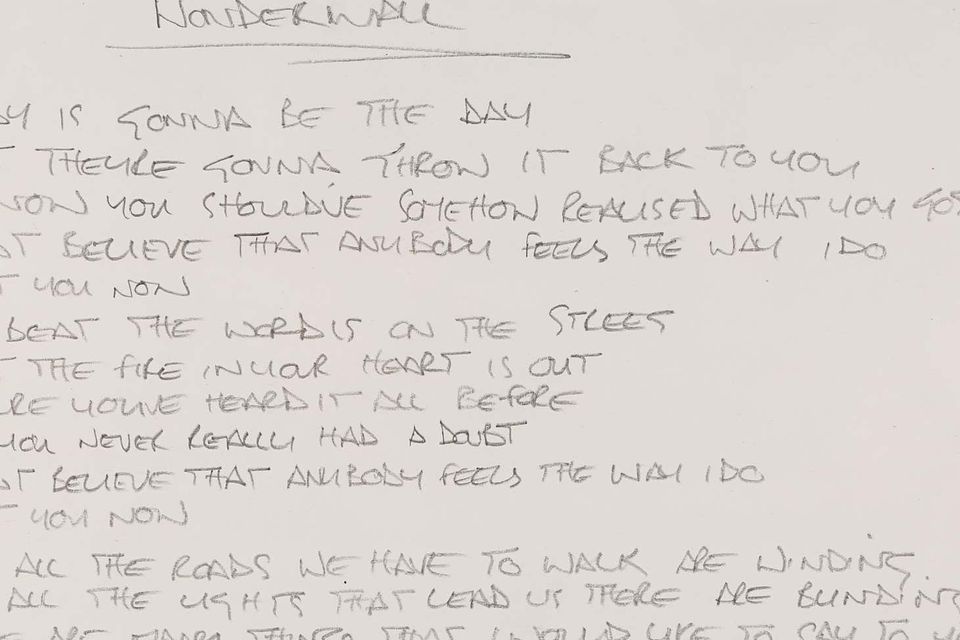 WONDERWALL
IS GONNA BE THE DAY
THEYRE GONNA THROW IT BACK TO YOU
YOU SHOULDVE SOMEHOW REALISED WHAT YOU
BELIEVE THAT ANYBODY FEELS THE WAY I DO
YOU NOW
BEAT THE WORD IS ON THE STREET
THE FIRE IN YOUR HEART IS OUT
YOUVE HEARD IT ALL BEFORE
YOU NEVER REALLY HAD A DOUBT
BELIEVE THAT ANYBODY FEELS THE WAY I DO
YOU NOW
ALL THE ROADS WE HAVE TO WALK ARE WINDING
ALL THE LIGHTS THAT LEAD US THERE ARE BLINDING